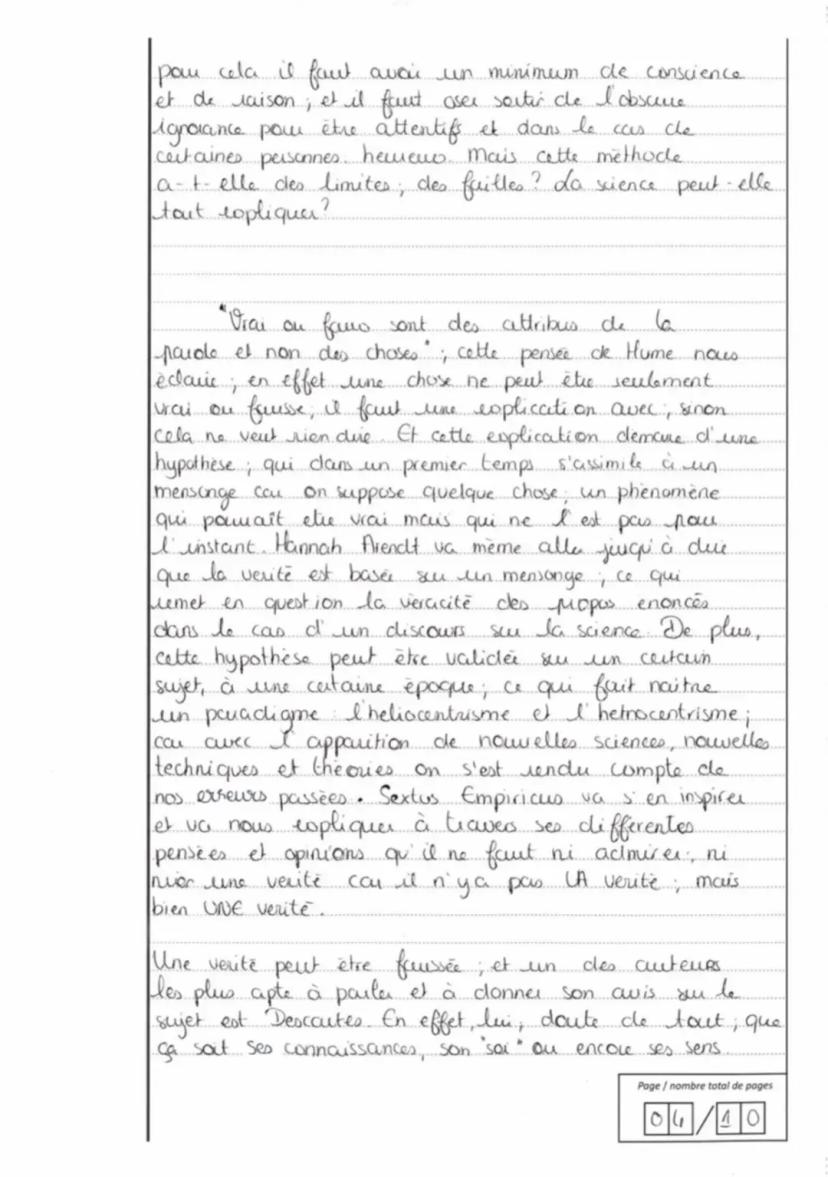 pour cela il faut avoir un minimum de conscience
et de raison ; et il faut oser sortir de l'obscure
ignorance pour être attentifs et dans le cas de
certaines personnes heureux. Mais cette méthode
a-t-elle des limites ; des failles ? La science peut-elle
tout expliquer ?
"Vrai ou faux sont des attribus de la
parole et non des choses" ; cette pensée de Hume nous
éclaire ; en effet une chose ne peut être seulement
vrai ou fausse, il faut une explication avec ; sinon
cela ne veut rien dire. Et cette explication demeure d'une
hypothèse ; qui dans un premier temps s'assimile à un
mensonge car on suppose quelque chose, un phénomène
qui pourrait être vrai mais qui ne l'est pas pour
l'instant. Hannah Arendt va même aller jusqu'à dire
que la vérité est basée sur un mensonge ; ce qui
remet en question la véracité des propos énoncés
dans le cas d'un discours sur la science. De plus,
cette hypothèse peut être validée sur un certain
sujet, à une certaine époque ; ce qui fait naître
un paradigme : l'héliocentrisme et l'hétrocentrisme ;
car avec l'apparition de nouvelles sciences, nouvelles
techniques et théories on s'est rendu compte de
nos erreurs passées. Sextus Empiricus va s'en inspirer
et va nous expliquer à travers ses différentes
pensées et opinions qu'il ne faut ni admirer, ni
nier une vérité car il n'y a pas LA vérité ; mais
bien UNE vérité.
Une vérité peut être faussée ; et un des auteurs
les plus apte à parler et à donner son avis sur le
sujet est Descartes. En effet, lui, doute de tout ; que
ça soit ses connaissances, son "soi" ou encore ses sens.
Page / nombre total de pages
04/10